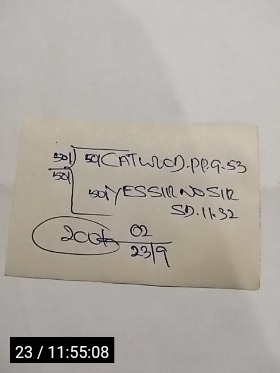 50/ 50/ CATWOOD.P.P.9.53
50/
50/ YESSIR NO SIR
SD.11.32
200/- 02
23/9
23 / 11:55:08